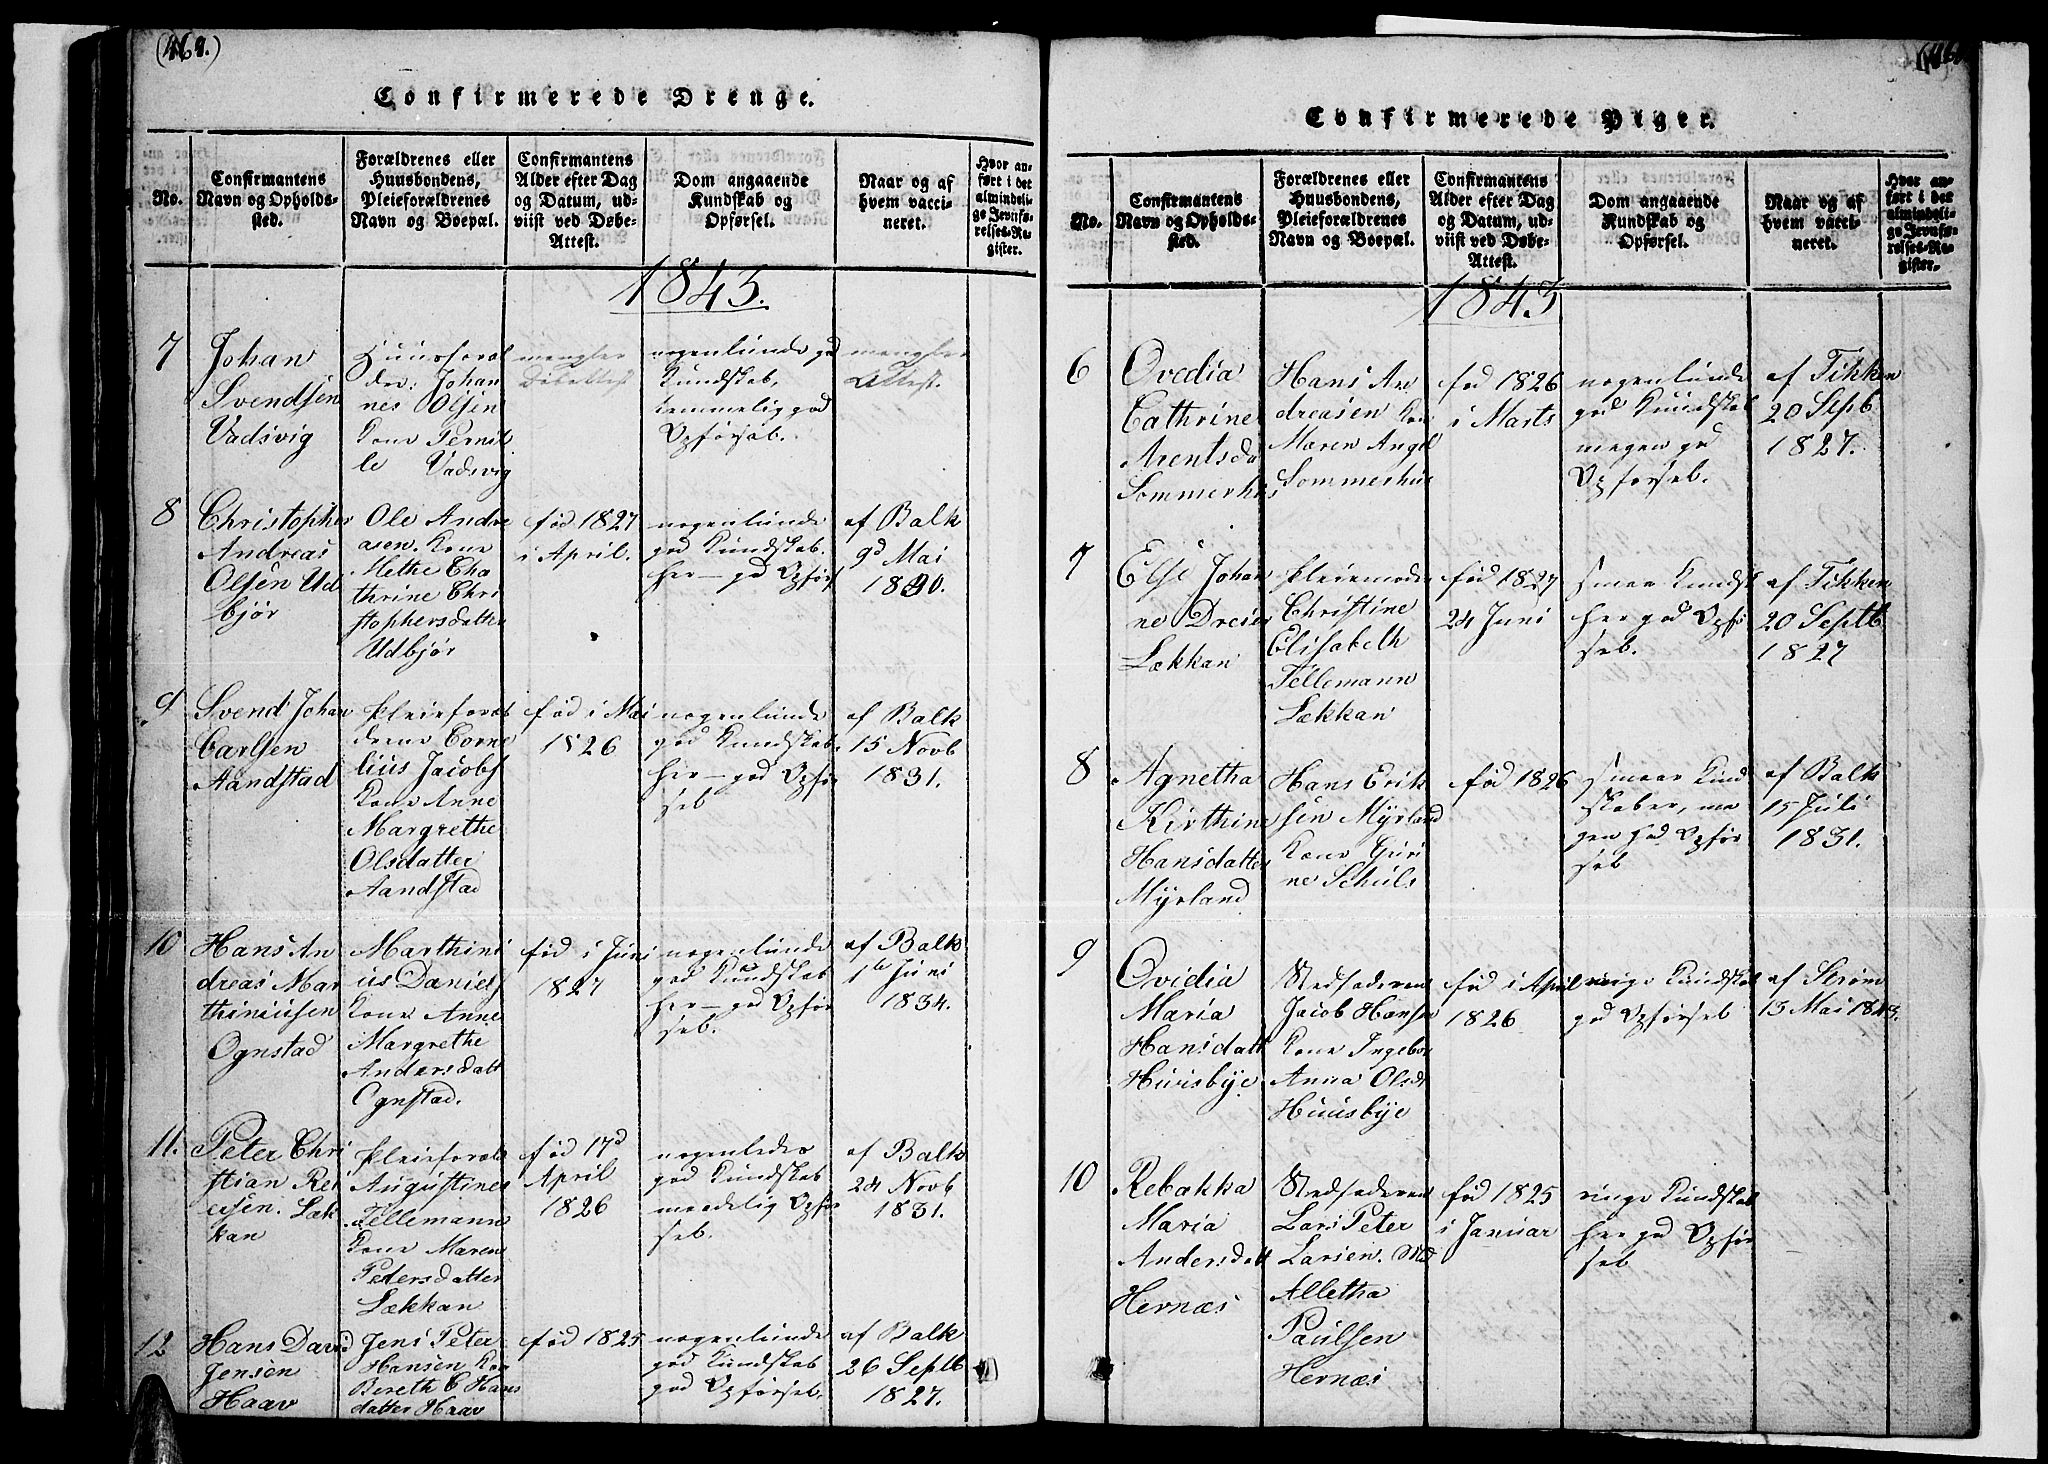 Confirmerede Drenge.
No.
Confirmantens
Navn og Opholds-
sted.
Forældrenes eller
Huusbondens,
Pleieforældrenes
Navn og Boepæl.
Confirmantens
Alder efter Dag
og Datum, ud-
viist ved Døbe-
Attest.
Dom angaaende
Kundskab og
Opførsel.
Naar og af
hvem vacci-
neret.
Hvor an-
ført i det
almindeli-
ge Jevnfø-
relses-Re-
gister.
1843.
7
Johan
Svendsen
Vadsvig
Huusforæl
dre: Johan
nes Olsen
Kone Pernil
le Vadsvig
mengler
Døbattest
nogenlunde god
Kundskab,
temmelig god
Opførsel.
mengler
Attest.
8
Christopher
Andreas
Olsen Ud
bjør
Ole Andre
asen. Kone
Methe Cha
thrine Chri
stophersdatter
Udbjør
fød 1827
i April.
nogenlunde
god Kundskab.
god Opførs
af Balk
9d Mai
9
Svend Johan
Carlsen
Aandstad
Pleieforæl
drene Corne
lius Jacobs
Kone Anne
Margrethe
Olsdatter
Aandstad
fød i Mai
1826
nogenlunde
god Kundskab.
god Opfør
sel
af Balk
15 Novb
1831.
10
Hans An
dreas Mar
thiniusen
Ognstad
Marthini
us Daniels
Kone Anne
Margrethe
Andersdatt
Ognstad.
fød i Juni
1827
nogenlunde
god Kundskab
god Opfør
sel.
af Balk
1te Juni
1834.
11.
Peter Chri
stian Rei
ersen. Læk
kan
Pleieforæl
Augustines
Tellemann
Kone Maren
Petersdatter
Lækkan
fød 17d
April
1826
nogenledes
god Kundskab
maadelig Opfør
sel.
af Balk
24 Novb
1831.
12
Hans David
Jensen
Haav
Jens Peter
Hansen Kon
Bereth C Hans
datter Haav
fød 1825
nogenlunde
god Kundskab
god Opførsel.
af Balk
26 Septb
1827.
Confirmerede Piger.
No.
Confirmantens
Navn og Opholds-
sted.
Forældrenes eller
Huusbondens,
Pleieforældrenes
Navn og Boepæl.
Confirmantens
Alder efter Dag
og Datum, ud-
viist ved Døbe-
Attest.
Dom angaaende
Kundskab og
Opførsel.
Naar og af
hvem vacci-
neret.
Hvor an-
ført i det
almindeli-
ge Jevnfø-
relses-Re-
gister.
1843
6
Ovedia
Cathrine
Arentsda
Sommerhus
Hans An
dreasen Kon
Maren Angel
Sommerhus
fød 1826
i Marts
nogenlunde
god Kundskab
megen god
Opførsel.
af Tikken
20 Septb
1827.
7
Else Johan
ne Dreier
Lækkan
Pleiemoder
Christine
Elisabeth
Tellemann
Lækkan
fød 1827
24 Juni
smaa Kundsk
god Opfør
sel.
af Tikken
20 Septb
1827
8
Agnetha
Kirthine
Hansdatter
Myrland
Hans Erik
sen Myrland
Kone Guri
ne Schuls
fød 1826
smaa Kund
skaber, me
gen god Opfør
sel
af Balk
15 Juli
1831.
9
Ovidia
Maria
Hansdatt
Huusbye
Stedfaderen
Jacob Hansen
Kone Ingebor
Anna Olsdt
Huusbye
fød i April
1826
ringe Kundskab
god Opførsel
af Strøm
13 Mai 1843.
10
Rebakka
Maria
Andersdatt
Hernæs
Stedfaderen
Lars Peter
Larsen. Md
Alletha
Paulsen
Hernæs
fød 1825
i Januar
ringe Kundskab
god Opfør
sel